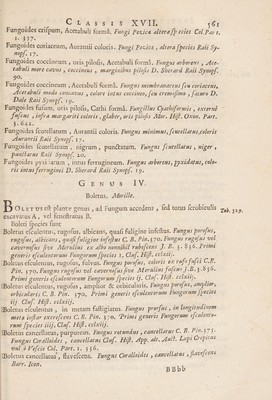 CLASSIS XVII. 561
Fungoides crispum, Acetabuli formâ. Fungi Pezicæ altera species Col. Part.
1. 337.
Fungoides coriaceum, Aurantii coloris. Fungi Pezicæ, altera species Raii Sy-
nopf. 17.
Fungoides coccineum, oris pilosis, Acetabuli formâ. Fungus arboreus, Ace-
tabuli more cavus, coccineus, marginibus pilosis D. Sherard Raii Synopf.
90.
Fungoides coccineum, Acetabuli formâ. Fungus membranaceus seu coriaceus,
Acetabuli modo concavus, colore intus coccineo, seu cremesino, Dno D.
Dale Raii Synopf. 19.
Fungoides fusum, oris pilosis, Cathi formâ. Fungillus Cyathiformis, externè
fuscus, infra margariti coloris, glaber, oris pilosis Mor. Hist. Oxon. Part.
3. 642.
Fungoides scutellatum, Aurantii coloris. Fungus minimus, scutellatus, coloris
Aurantii Raii Synopf. 17.
Fungoides scutellatum, nigrum, punctatum. Fungus scutellatus, niger,
punctatus Raii Synopf. 20.
Fungoides pyxidatum, intus ferrugineum. Fungus arboreus, pyxidatus, colo-
ris intus ferrugini D. Sherard Raii Synopf. 19.
GENUS IV.
Boletus. Morille.
BOLETUS est plantæ genus, ad Fungum accedens, sed totus scrobiculis
excavatus A, vel fenestratus B. Tab. 329.
Boleti species sunt
Boletus esculentus, rugosus, albicans, quasi fuligine infectus. Fungus porosus,
rugosus, albicans, quasi fuligine infectus C. B. Pin. 370. Fungus rugosus vel
cavernosus sive Merulius ex albo nonnihil rubescens J. B. 3. 836. Primi
generis esculentorum Fungorum species 1, Cluf. Hist. cclxiij.
Boletus esculentus, rugosus, fulvus. Fungus porosus, coloris ex rufo fusci C. B.
Pin. 370. Fungus rugosus vel cavernosus sive Merulius fuscus J. B. 3. 836.
Primi generis esculentorum Fungorum species ij. Cluf. Hist. cclxiij.
Boletus esculentus, rugosus, amplior & orbicularis. Fungus porosus, amplior,
orbicularis C. B. Pin. 370, Primi generis esculentorum Fungorum species
iij Cluf. Hist. cclxiij.
Boletus esculentus, in metam fastigiatus. Fungus porosus, in longitudinem
metæ instar excrescens C. B. Pin. 370. Primi generis Fungorum esculento-
rum species iiij. Cluf. Hist. cclxiij.
Boletus cancellatus, purpureus. Fungus rotundus, cancellatus C. B. Pin. 375.
Fungus Coralloides, cancellatus Cluf. Hist. App. alt. Auct. Lupi Crepitus
vul ò Vesicia Col. Part. 1. 336.
Boletus cancellatus, flavescens. Fungus Coralloides, cancellatus, flavescens
Barr. Icon.
BBbb